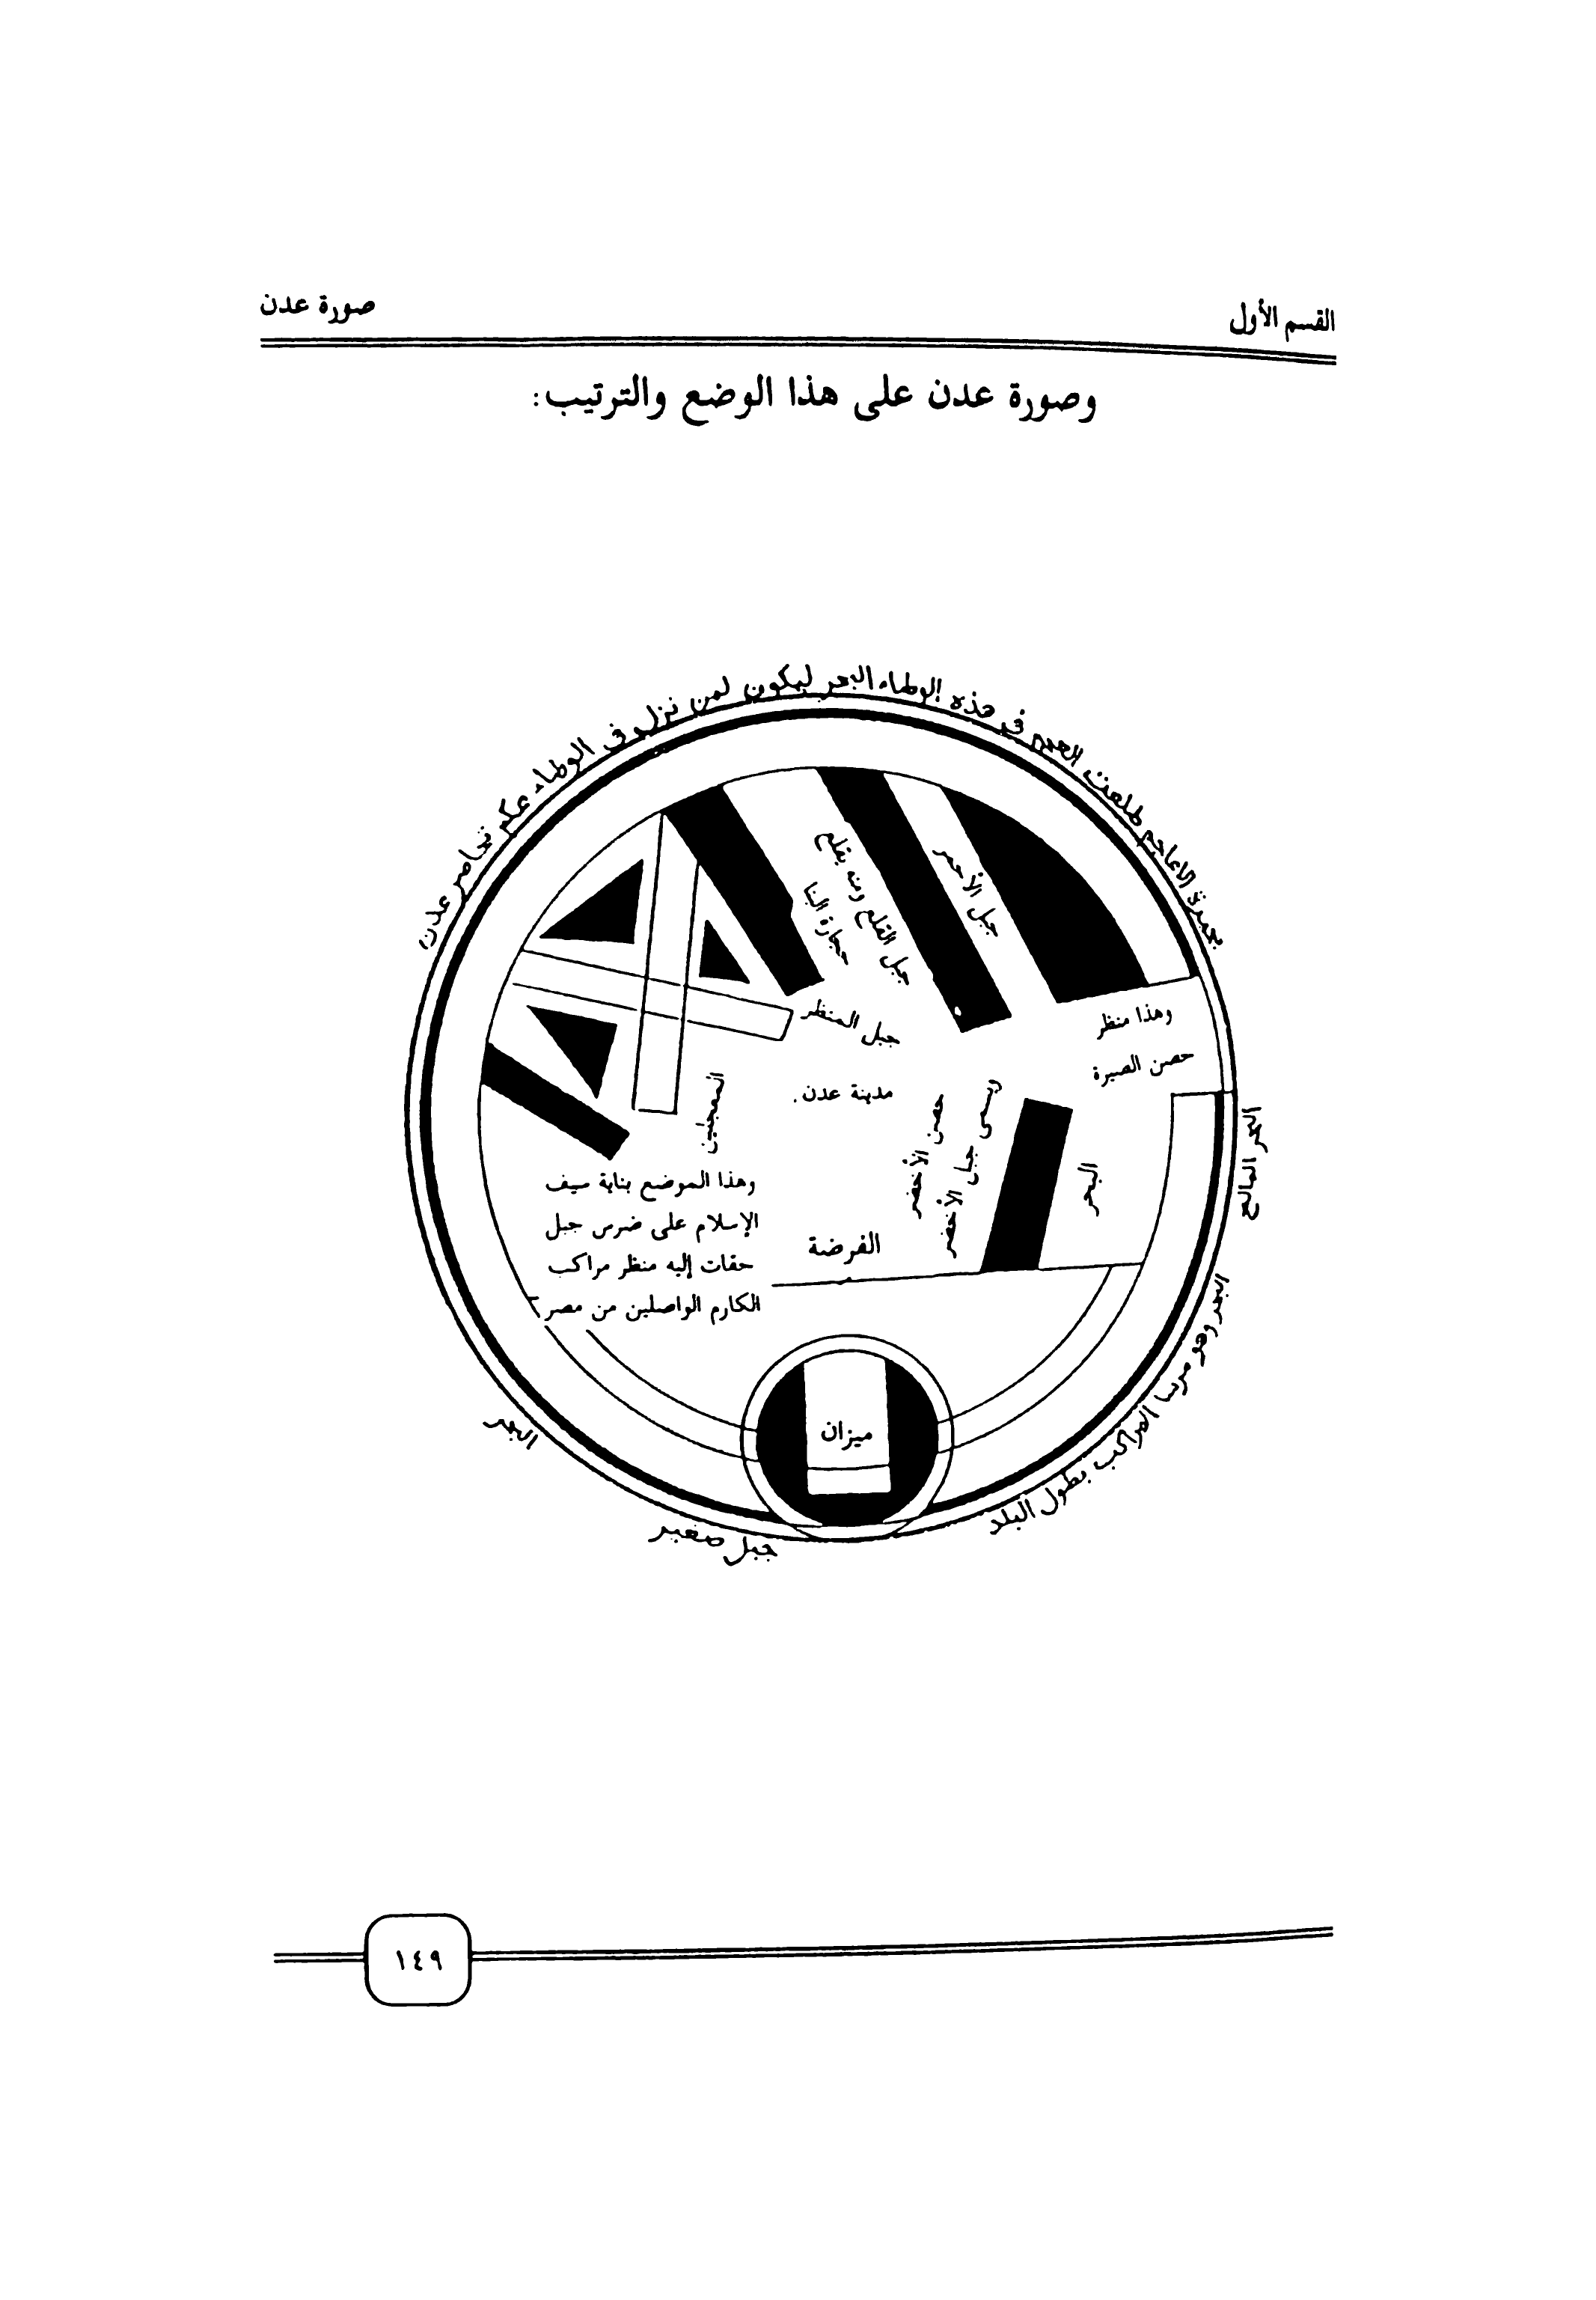 القسم الأول
صورة عدن
وصورة عدن على هذا الوضع والترتيب:
في هذه الوطاء البحر ليكون لمن نزل في الوطاء
عدن
جبل الأحمر
جبل القلع ومنه يقلع
حجارة البنا
جبل المنظر
وهذا منظر
حصن الصيرة
مدينة عدن.
حصن الأخضر
ويسمى جبل الأخضر
البحر
البحر المالح
وهذا الموضع بناية سيف
الإسلام على ضرس جبل
حقات إليه منظر مراكب
الكارم الواصلين من مصر
الفرضة
ميزان
البحر وهو مرسا المراكب بطول البلد
البحر
جبل صغير
١٤٩